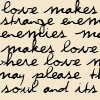 love makes
strange enem
enemies. ma
makes love
where love m
may please t
soul and its